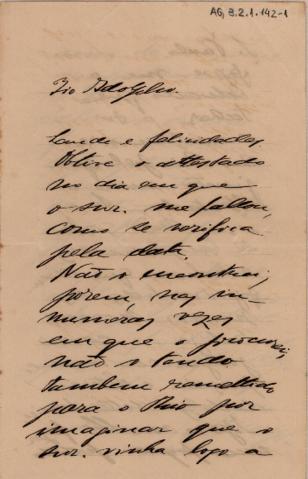 AG, 3.2.1.142-1
Tio Adolpho.
Saude e felicidades
Obtive o attestado
no dia em que
o snr. me fallou,
como se verifica
pela data.
Não o encontrei,
porém, nas in-
numeras vezes
em que o procurei,
não o tendo
tambem remettido
para o Rio por
imaginar que o
snr. vinha logo a